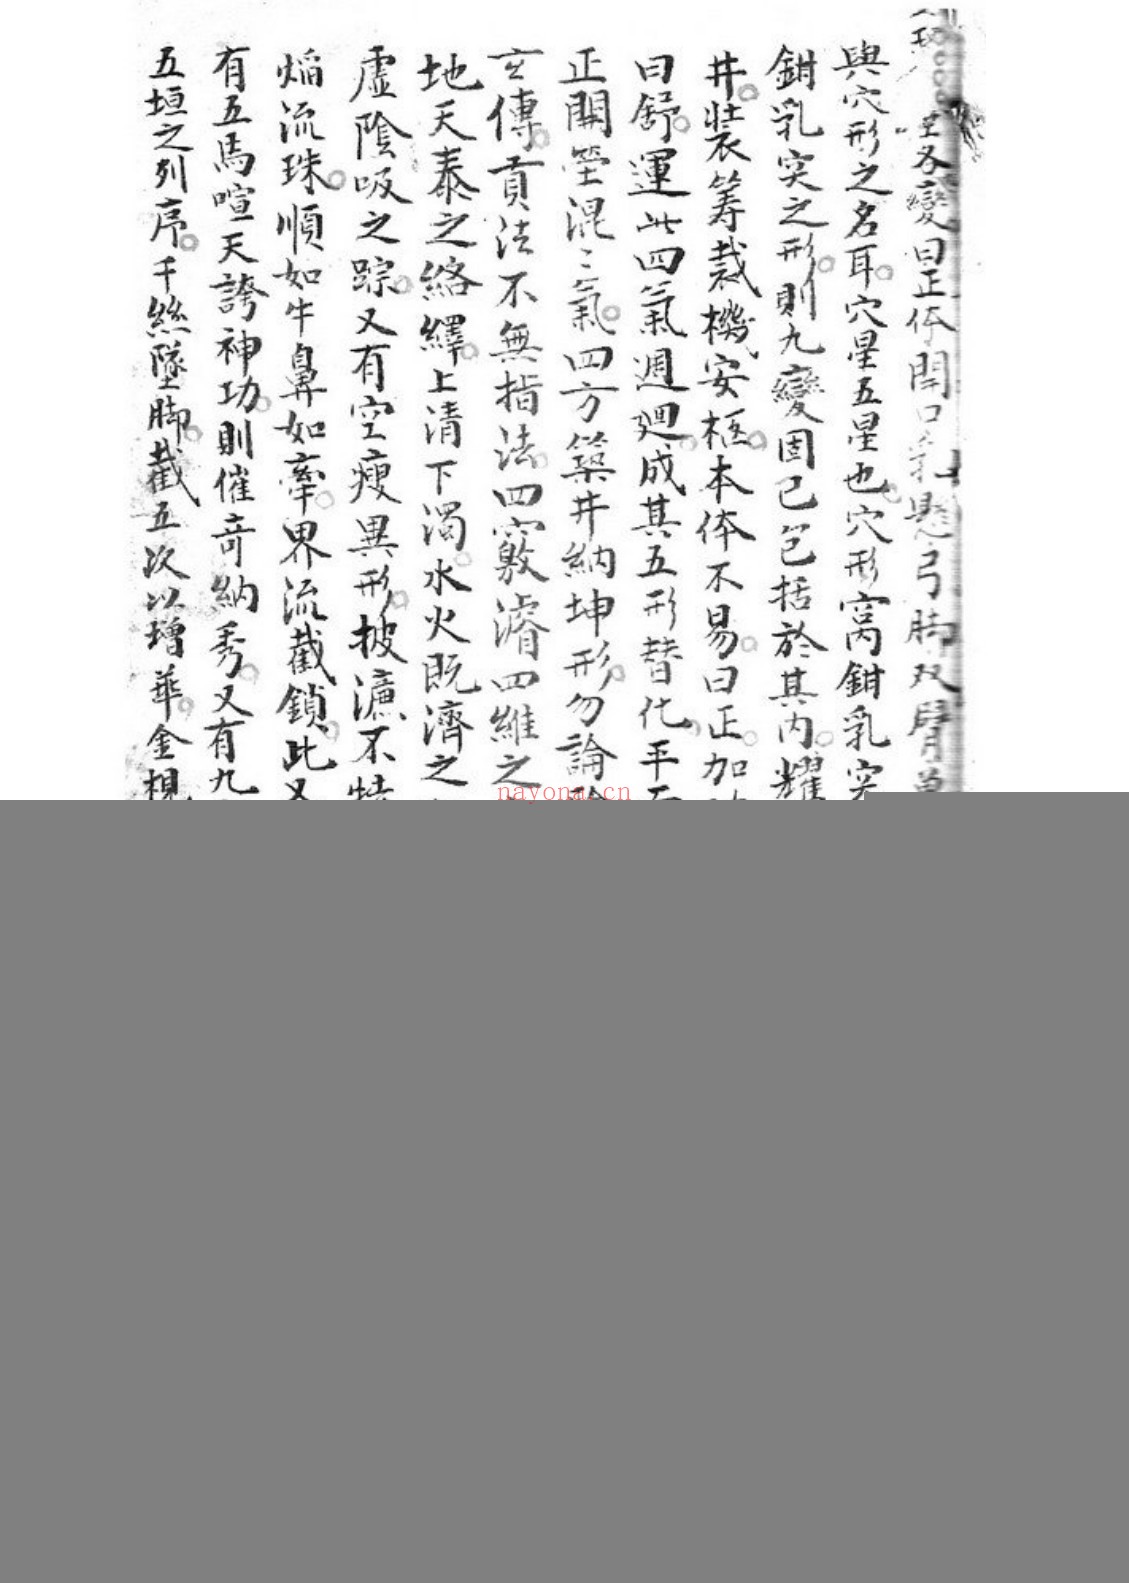 各變曰正体開口乳懸弓脚双臂
與穴形之名耳穴星五星也穴形窩鉗乳突
鉗乳突之形則九變固已包括於其内耀
井裝筹裁機安柩本体不易曰正加
曰舒運此四氣週廻成其五形替化平
正開茔混〻氣四方築井納坤形勿論
玄傳貢法不無指法四竅濬四維之
地天泰之絡繹上清下濁水火既濟之
虛陰吸之踪又有空瘦異形披濂不
焰流珠順如牛鼻如牽界流截鎖此又
有五馬喧天誇神功則催竒納秀又有九
五垣之列序千絲墜脚截五次以增華金規
nayona.cn